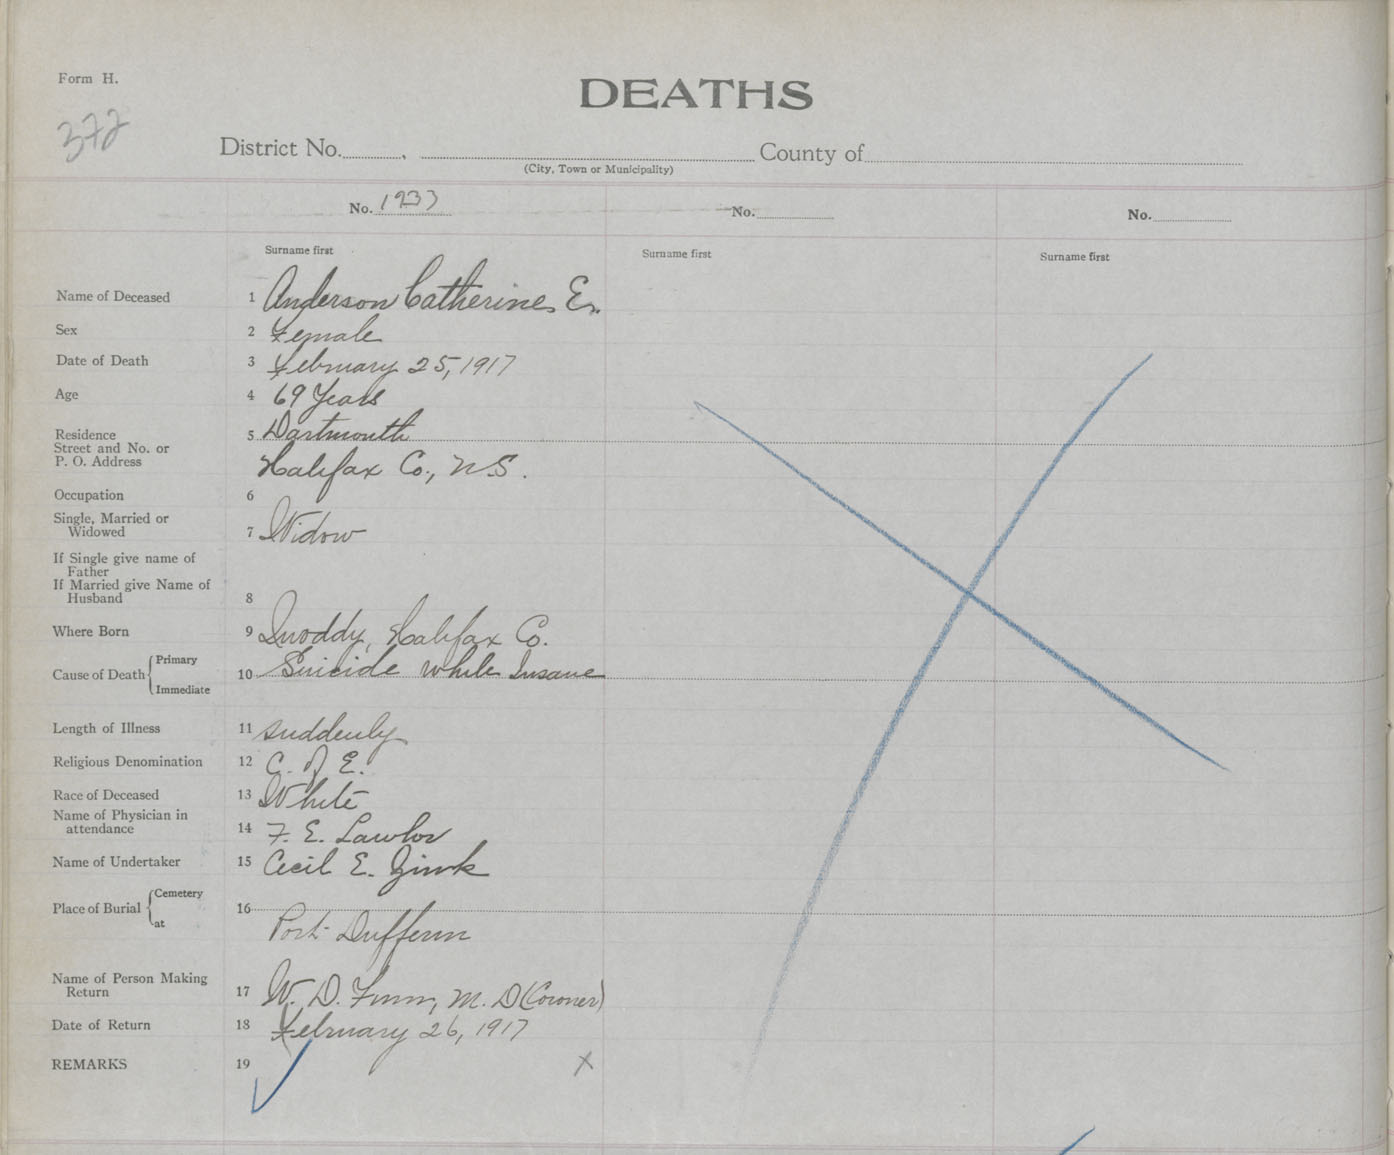 Form H.
DEATHS
372
District No. , County of
(City, Town or Municipality)
No. 1933 No. No.
Surname first Surname first Surname first
Name of Deceased 1 Anderson Catherine E.
Sex 2 Female
Date of Death 3 February 25, 1917
Age 4 69 Years
Residence
Street and No. or
P. O. Address
5 Dartmouth
Halifax Co., N.S.
Occupation 6
Single, Married or
Widowed
7 Widow
If Single give name of
Father
If Married give Name of
Husband
8
Where Born 9 Quoddy, Halifax Co.
Cause of Death Primary
Immediate
10 Suicide while Insane
Length of Illness 11 suddenly
Religious Denomination 12 C. of E.
Race of Deceased 13 White
Name of Physician in
attendance
14 F. E. Lawlor
Name of Undertaker 15 Cecil E. Zink
Place of Burial Cemetery
at
16
Port Dufferin
Name of Person Making
Return
17 W. D. Finn, M. D (Coroner)
Date of Return 18 February 26, 1917
REMARKS 19 X